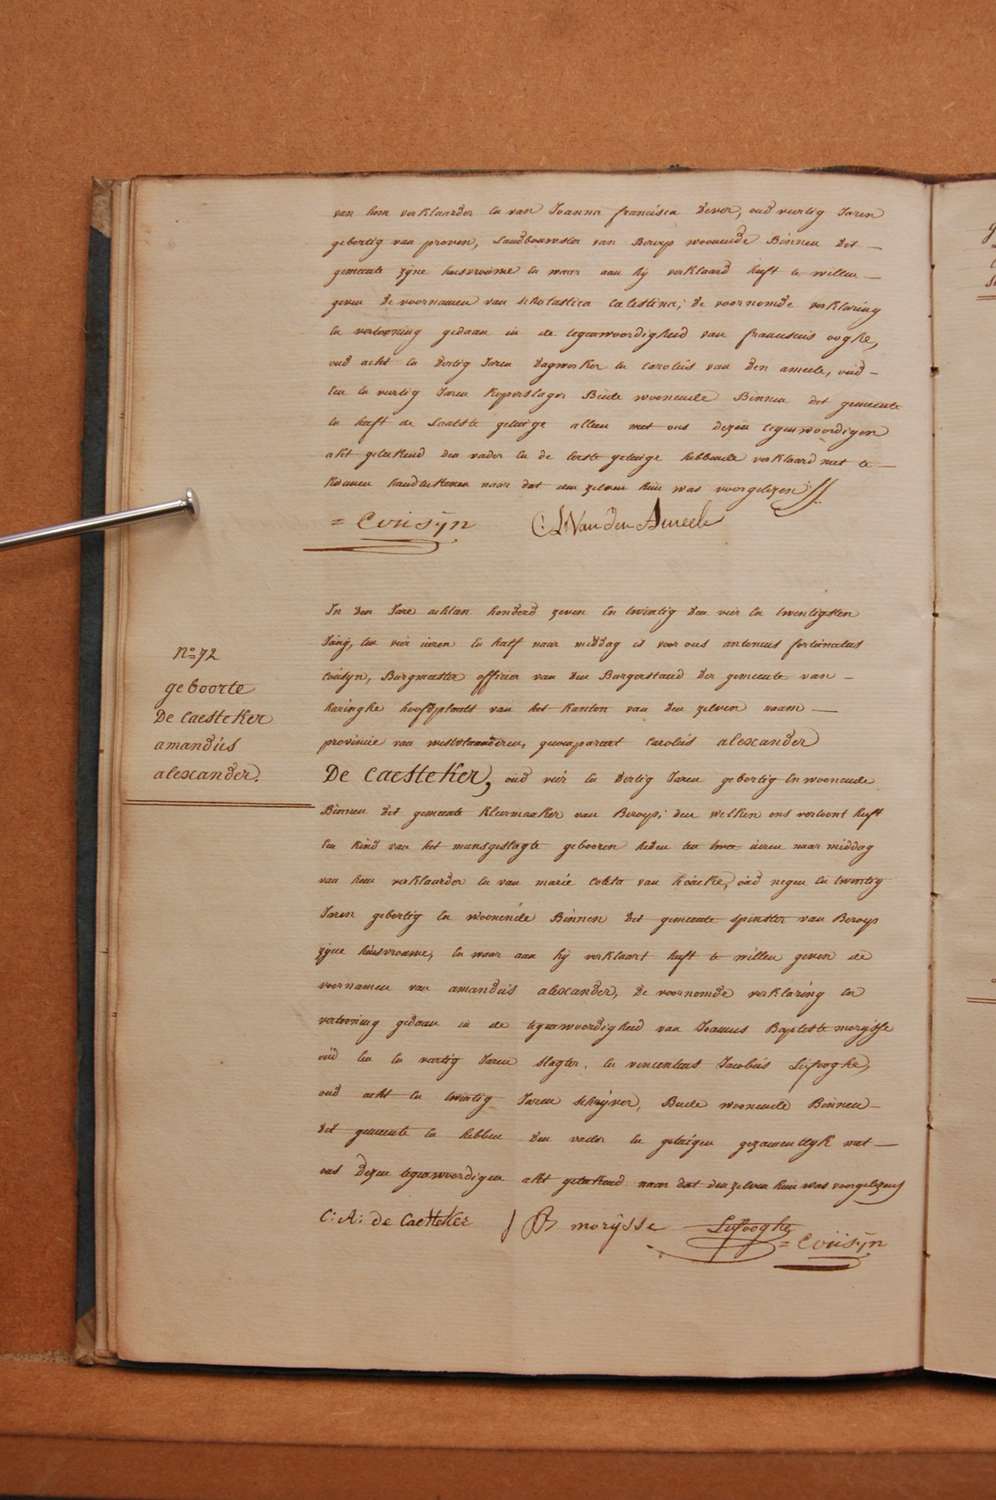 van hem verklaarder en van Joanna francisca Dever, oud veertig Jaren
gebortig van proven, Landbouwster van Beroep woonende Binnen dit
gemeente zyne huisvrouwe en waar aan hy verklaard heeft te willen
geven de voornamen van scholastica Celestina; de voornomde verklaring
en vertooning gedaan in de tegenwoordigheid van franciscus ooghe,
oud acht en dertig Jaren Dagwerker en Carolus van den ameele, oud
en veertig Jaren koperslager Beide woonende Binnen dit gemeente
en heeft de Laatste getuige alleen met ons dezen tegenwoordigen
akt geteekend den vader en de eerste getuige hebbende verklaard niet te
konnen handteekenen naar dat den zelven hun was voorgelezen
= Cousÿn C: L: Van den Ameele
In den Jare achtien honderd zeven en twintig den vier en twentigsten
Juny, ten vier uren en half naar middag is voor ons antonius fortunatus
Cousyn, Burgmeester officier van den Burgerstand der gemeente van
haringhe hoofdplaats van het kanton van den zelven naam
provincie van westvlaanderen, gecompareert Carolus alexander
De Caesteker, oud vier en dertig Jaren gebortig en woonende
Binnen dit gemeente kleermaaker van Beroep; den welken ons vertoont heeft
een kind van het mansgeslagte gebooren heden ten twee uren naar middag
van hem verklaarder en van marie Coleta van houcke, oud negen en twintig
Jaren gebortig en woonende Binnen dit gemeente spinster van Beroep
zyne huisvrouwe, en waar aan hy verklaart heeft te willen geven de
voornamen van amandus alexander, de voornomde verklaring en
vertooning gedaan in de tegenwoordigheid van Joannes Baptiste morysse
oud en veertig Jaren slagter, en vincentius Jacobus Lefooghe,
oud acht en twintig Jaren schryver, Beide woonende Binnen
dit gemeente en hebben den vader en getuigen gezamentlyk met
ons dezen tegenwoordigen akt geteekend naar dat den zelven hun was voorgelezen
C: A: de Caesteker J B morÿsse Lefooghe
= Cousÿn
No 72
geboorte
De Caesteker
amandus
alexander.